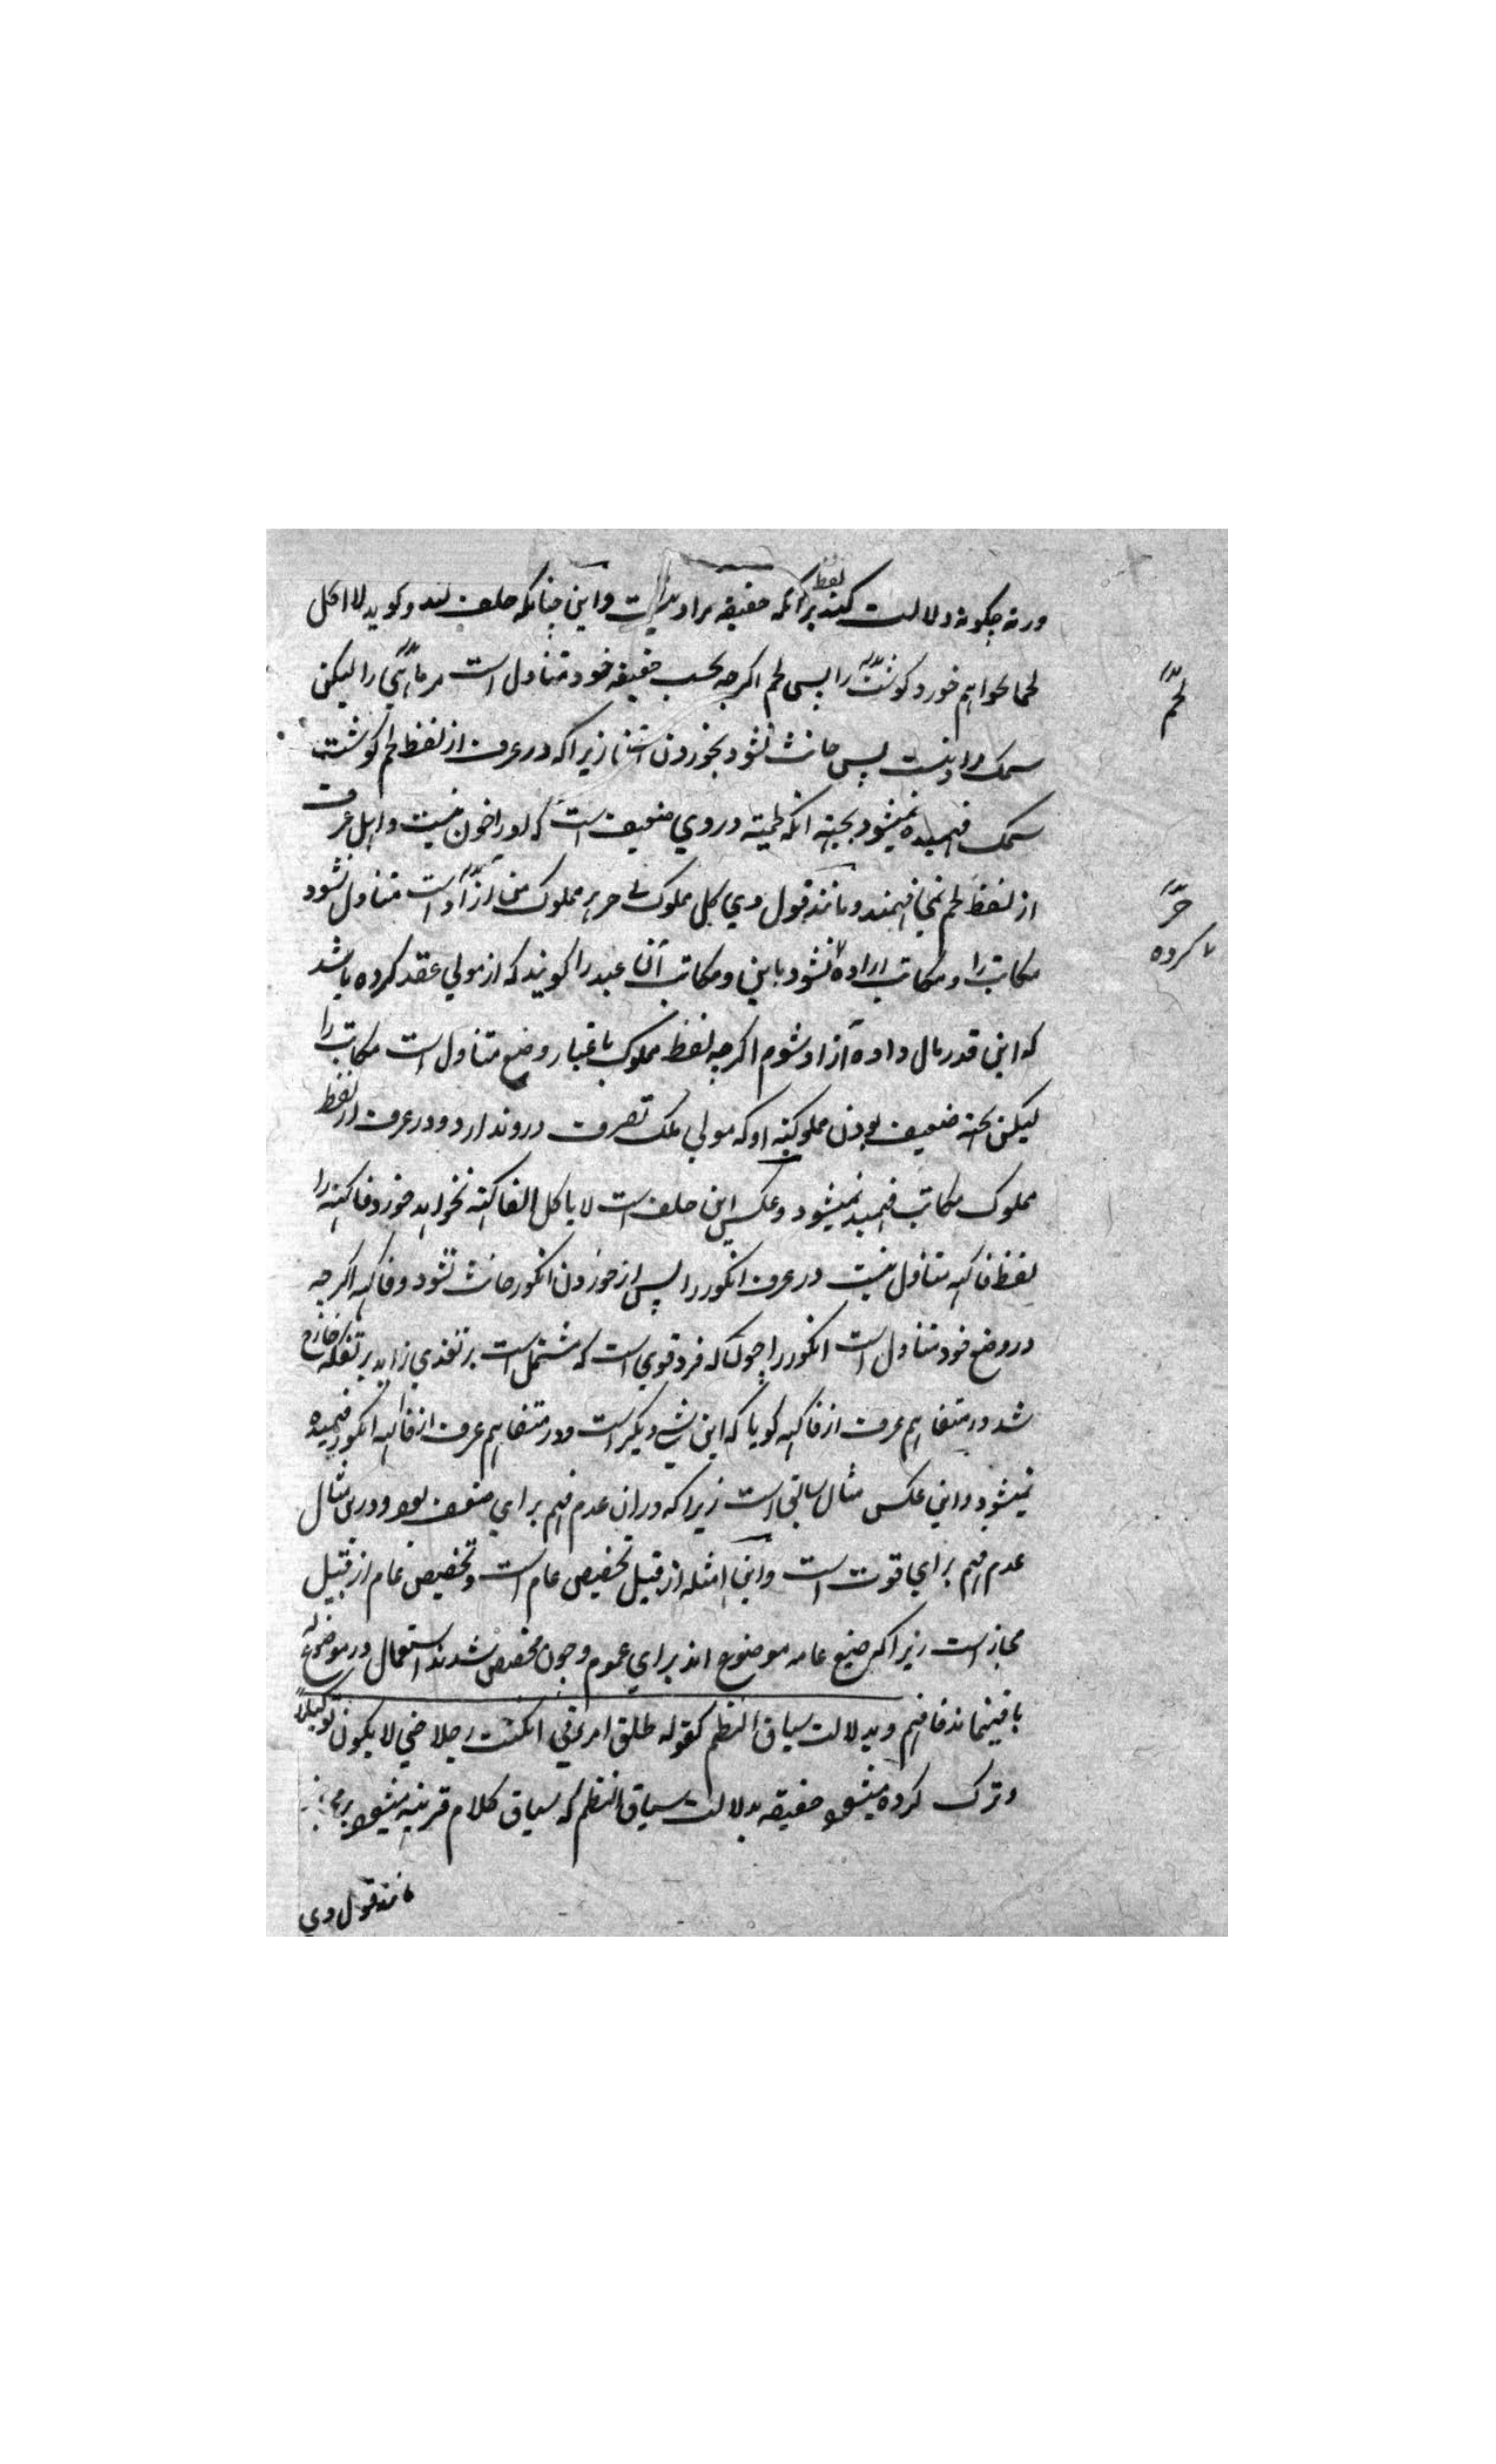 ورنه چکونه دلالت کند لفظ برآنکه حقیقه مراد نیست واین چنانکه حلف کند وکوید لا اکل
لحما نخواهم خورد کوشت را پس لحم اکرچه بحسب حقیقه خود متناول است مر ماهی را لیکن
سمک مراد نیست پس حانث نشود بخوردن زیراکه در عرف از لفظ لحم کوشت
سمک فهمیده نمیشود بجهته انکه لحمیته در وی ضعیف است که او را خون نیست واهل عرف
از لفظ لحم نمی فهمند ومانند قول وی کل مملوک لی حر هر مملوک من آزاد است متناول نشود
مکاتب را ومکاتب اراده نشود باین ومکاتب آن عبد را کویند که از مولی عقد کرده باشد
که این قدر مال داده آزاد شوم اکرچه لفظ مملوک باعتبار وضع متناول است مکاتب را
لیکن بجهته ضعیف بودن مملوکیته او که مولی ملک تصرف درو ندارد ودر عرف از لفظ
مملوک مکاتب فهمیده نمیشود وعکس این حلف است لا یاکل الفاکهة نخواهد خورد فاکهه را
لفظ فاکهه متناول نیست در عرف انکور را پس از خوردن انکور حانث نشود وفاکهه اکرچه
در وضع خود متناول است انکور را چونکه فرد قوی است که مشتمل است بر تغذی زاید بر تفکه خارج
شد در متفاهم عرف از فاکهه کویا که این شی دیکر است ودر متفاهم عرف از فاکهه انکور فهمیده
نمیشود واین عکس مثال سابق است زیراکه دران عدم فهم برای ضعف بود ودرین مثال
عدم فهم برای قوت است واین امثله از قبیل تخصیص عام است وتخصیص عام از قبیل
مجاز است زیراکه صیغ عامه موضوع اند برای عموم وچون مخصص شدند استعمال در موضوع له
باقی نماند فافهم وبدلالت سیاق النظم کقوله طلق امرأتی ان کنت رجلا حتی لا یکون توکیلا
وترک کرده میشود حقیقه بدلالت سیاق النظم که سیاق کلام قرینه میشود بر
مانند قول وی
لحم
حر
کرده